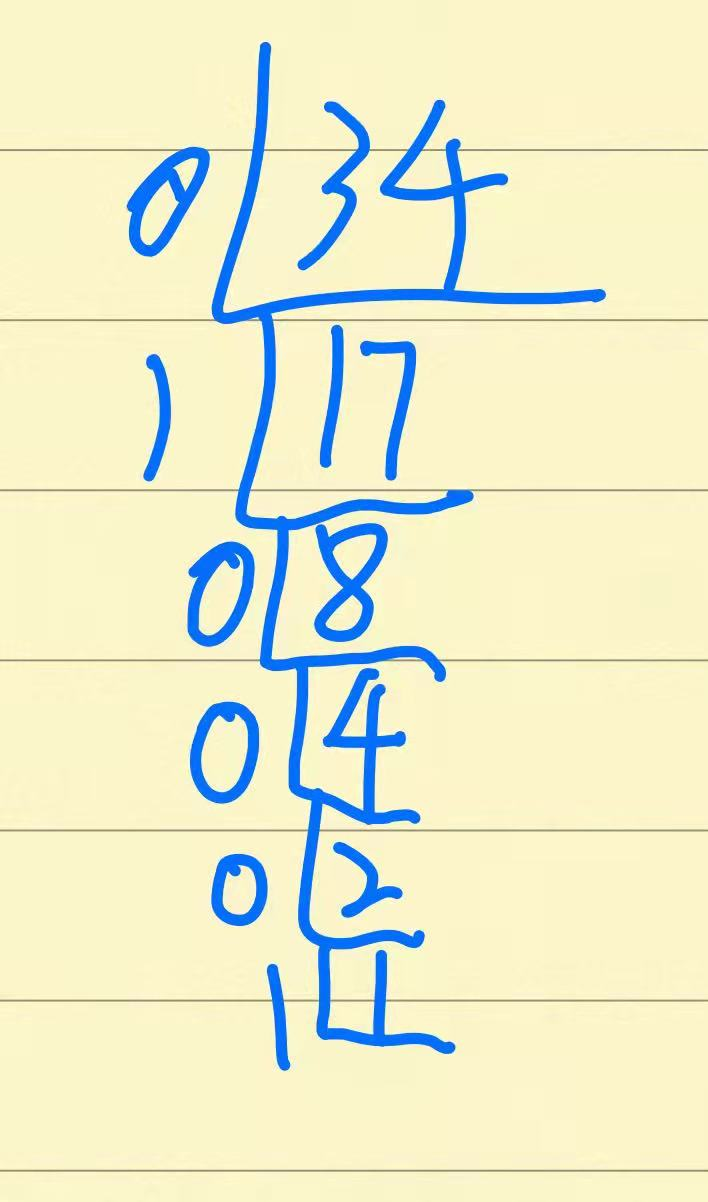 0 34
1 17
0 8
0 4
0 2
1 1